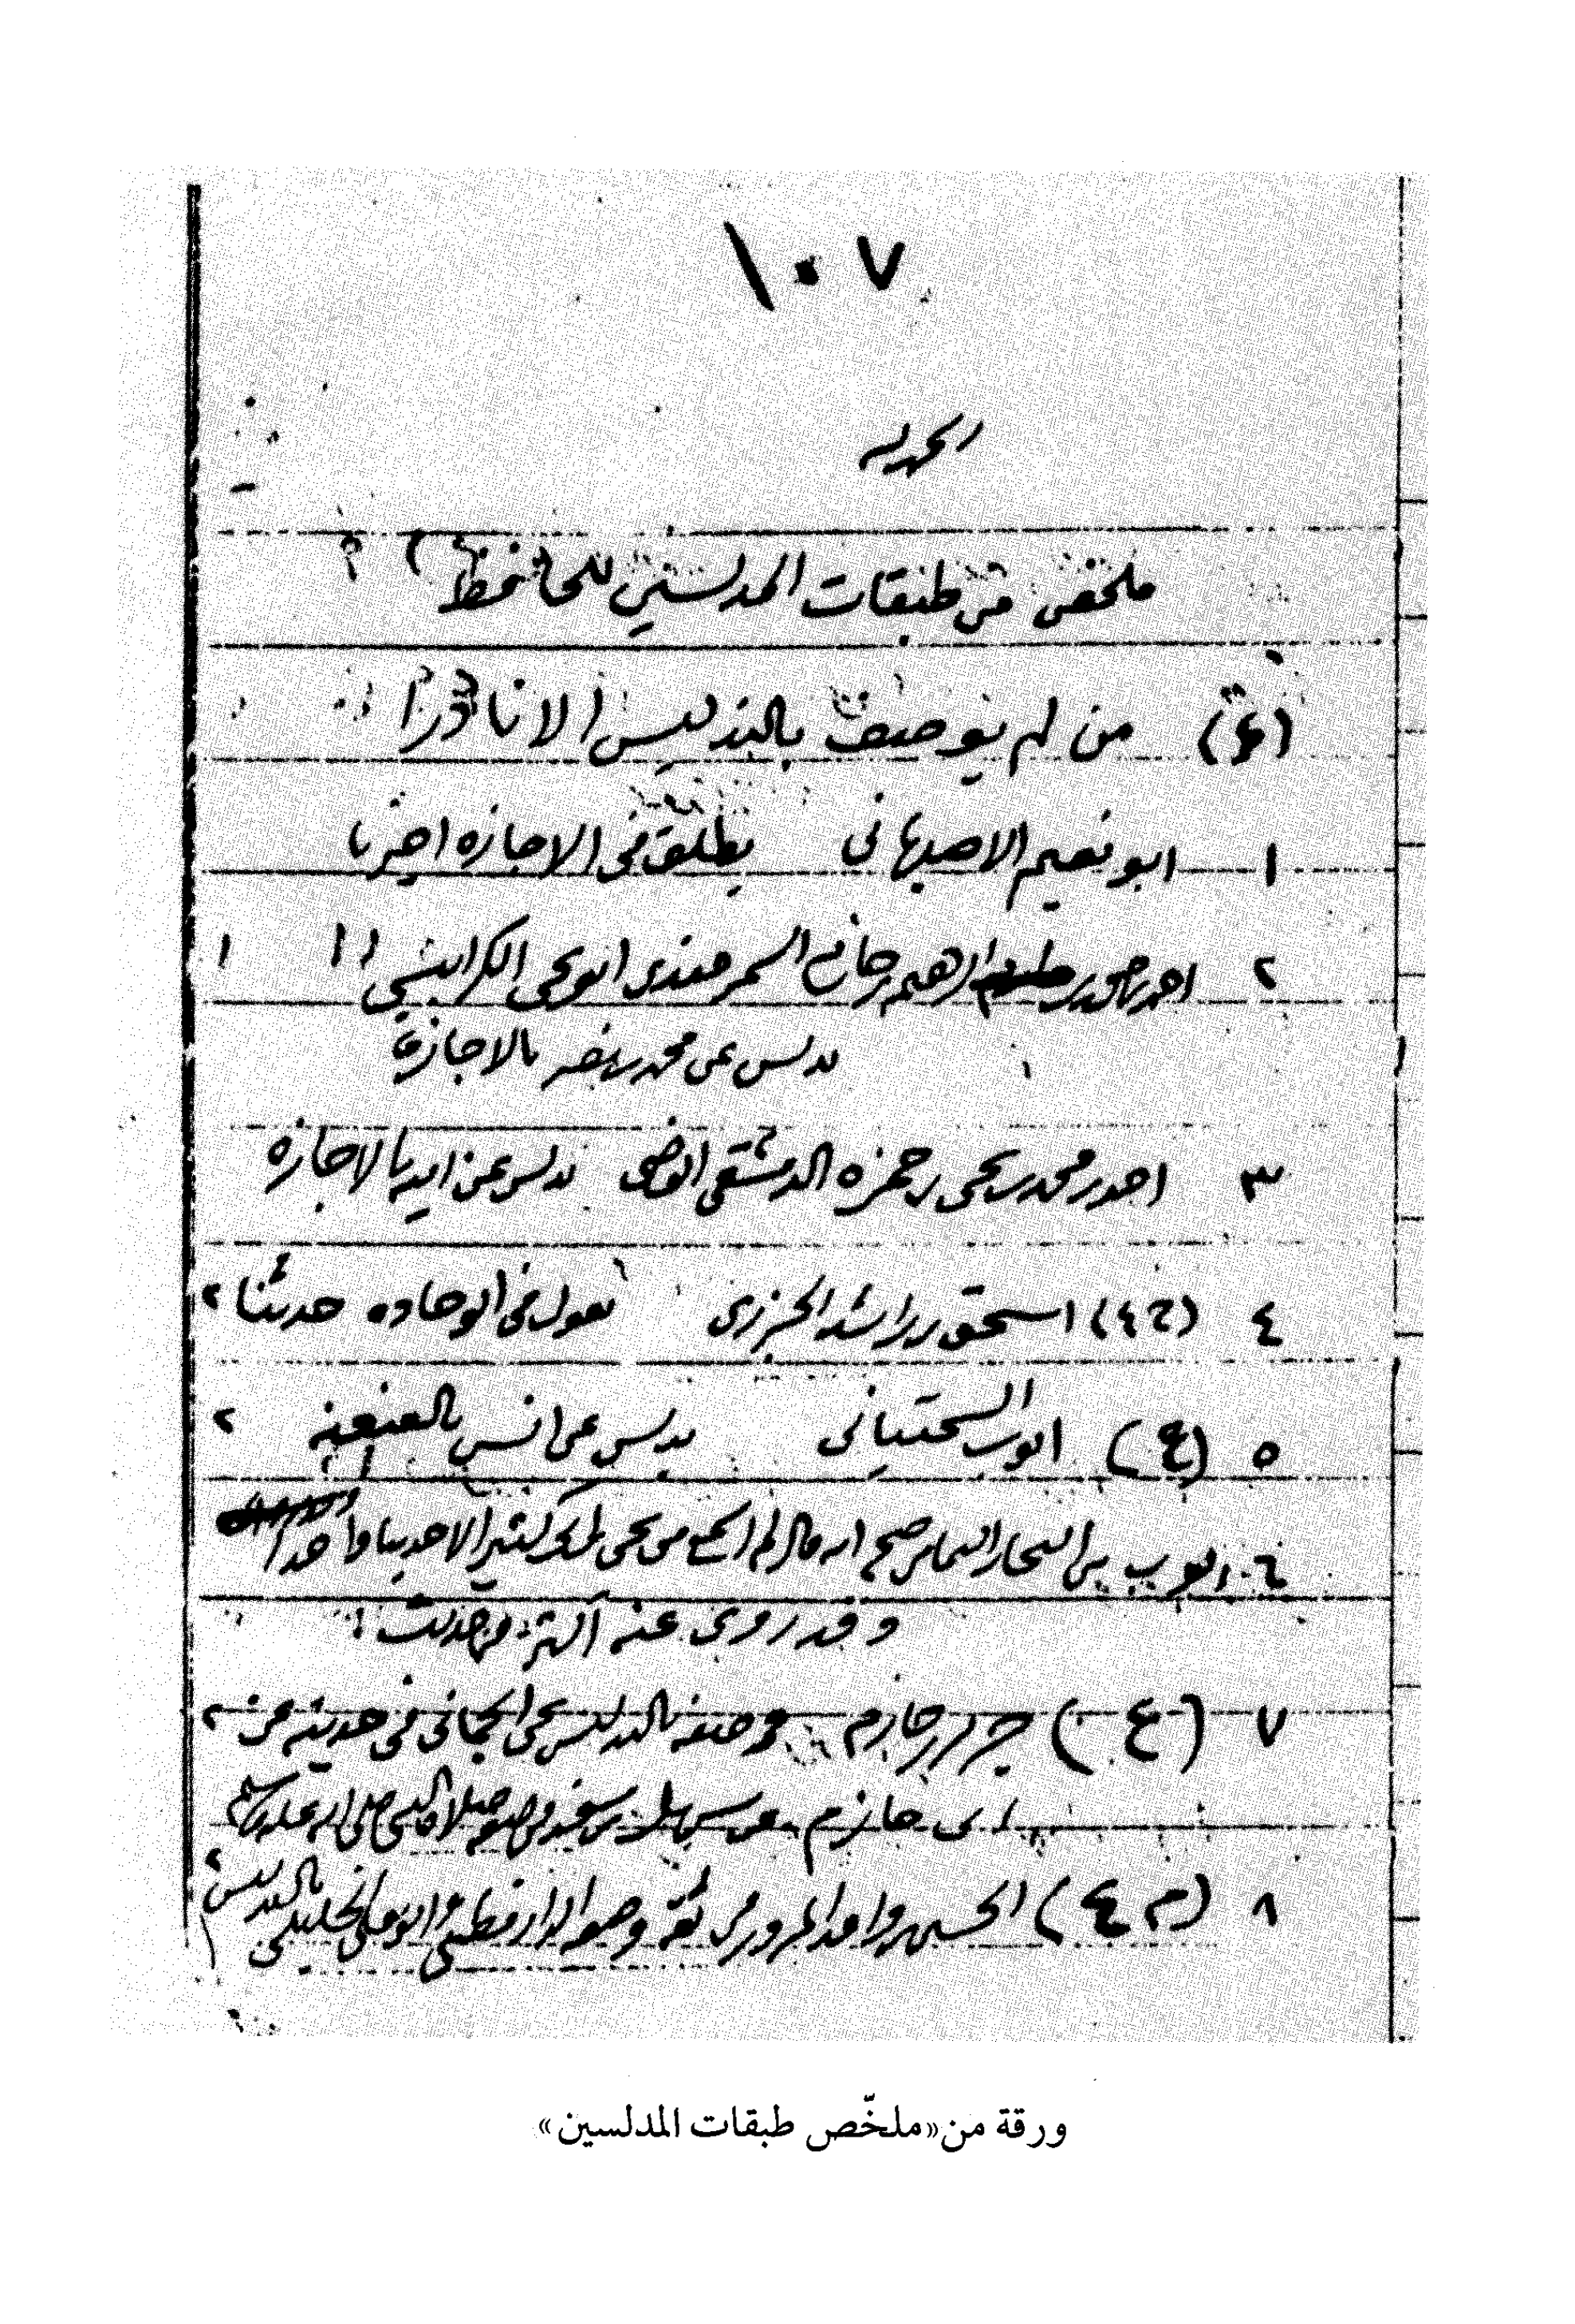 ١٠٧
الحمد لله
ملخص من طبقات المدلسين للحافظ
من لم يوصف بالتدليس الا نادرا
١ ابو نعيم الاصبهاني يطلق في الاجازة اخبرنا
٢ احمد بن ابرهيم بن حازم السمرقندي ابو يحيى الكرابيسي
يدلس عن محمد بن نصر بالاجازة
٣ احمد بن محمد بن يحيى بن حمزه الدمشقي القاضي يدلس عن ابيه بالاجازه
٤ اسحق بن راشد الجزري يقول في الوجاده حدثنا ٢
٥ (ع) ايوب السختياني يدلس عن انس بالعنعنة ٢
٦ ايوب بن النجار اليمامي صح انه قال لم اسمع من يحيى بن ابي كثير الا حديثا واحدا
وقد روى عنه اكثر من حديث
٧ (ع) جرير بن حازم وصفه بالتدليس يحيى الحماني في حديثه عن ٢
ابي حازم عن سهل بن سعد في صفة صلاة النبي صلى الله عليه وسلم
٨ (م ٤) الحسين بن واقد المروزي ثقة وصفه الدارقطني وابو يعلى الخليلي بالتدليس
ورقة من «ملخّص طبقات المدلسين»